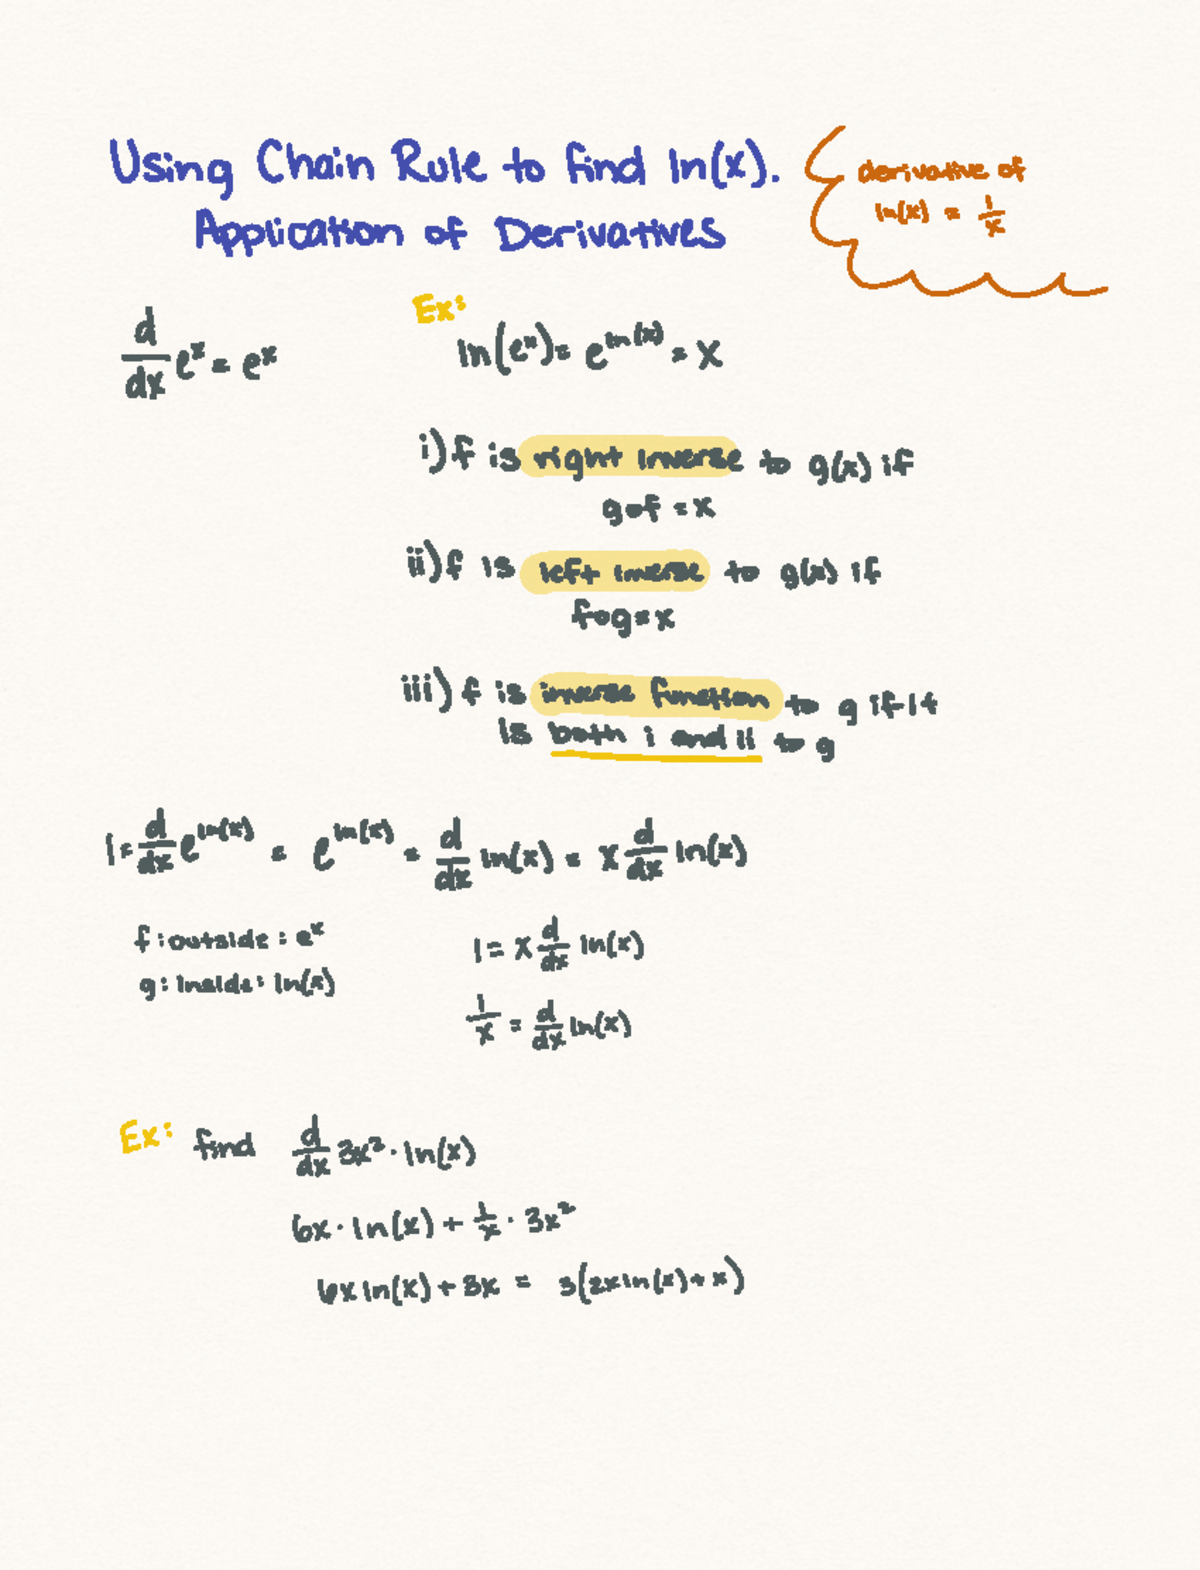 Using Chain Rule to find ln(x).
Application of Derivatives
derivative of
ln(x) = 1/x
d/dx e^x = e^x
Ex:
ln(e^x) = e^ln(x) = x
i) f is right inverse to g(x) if
g∘f = x
ii) f is left inverse to g(x) if
f∘g = x
iii) f is inverse function to g if it
is both i and ii to g
1 = d/dx e^ln(x) = e^ln(x) = d/dx ln(x) = x d/dx ln(x)
f: outside: e^x
g: inside: ln(x)
1 = x d/dx ln(x)
1/x = d/dx ln(x)
Ex: find d/dx 3x² · ln(x)
6x · ln(x) + 1/x · 3x²
6x ln(x) + 3x = 3(2x ln(x) + x)